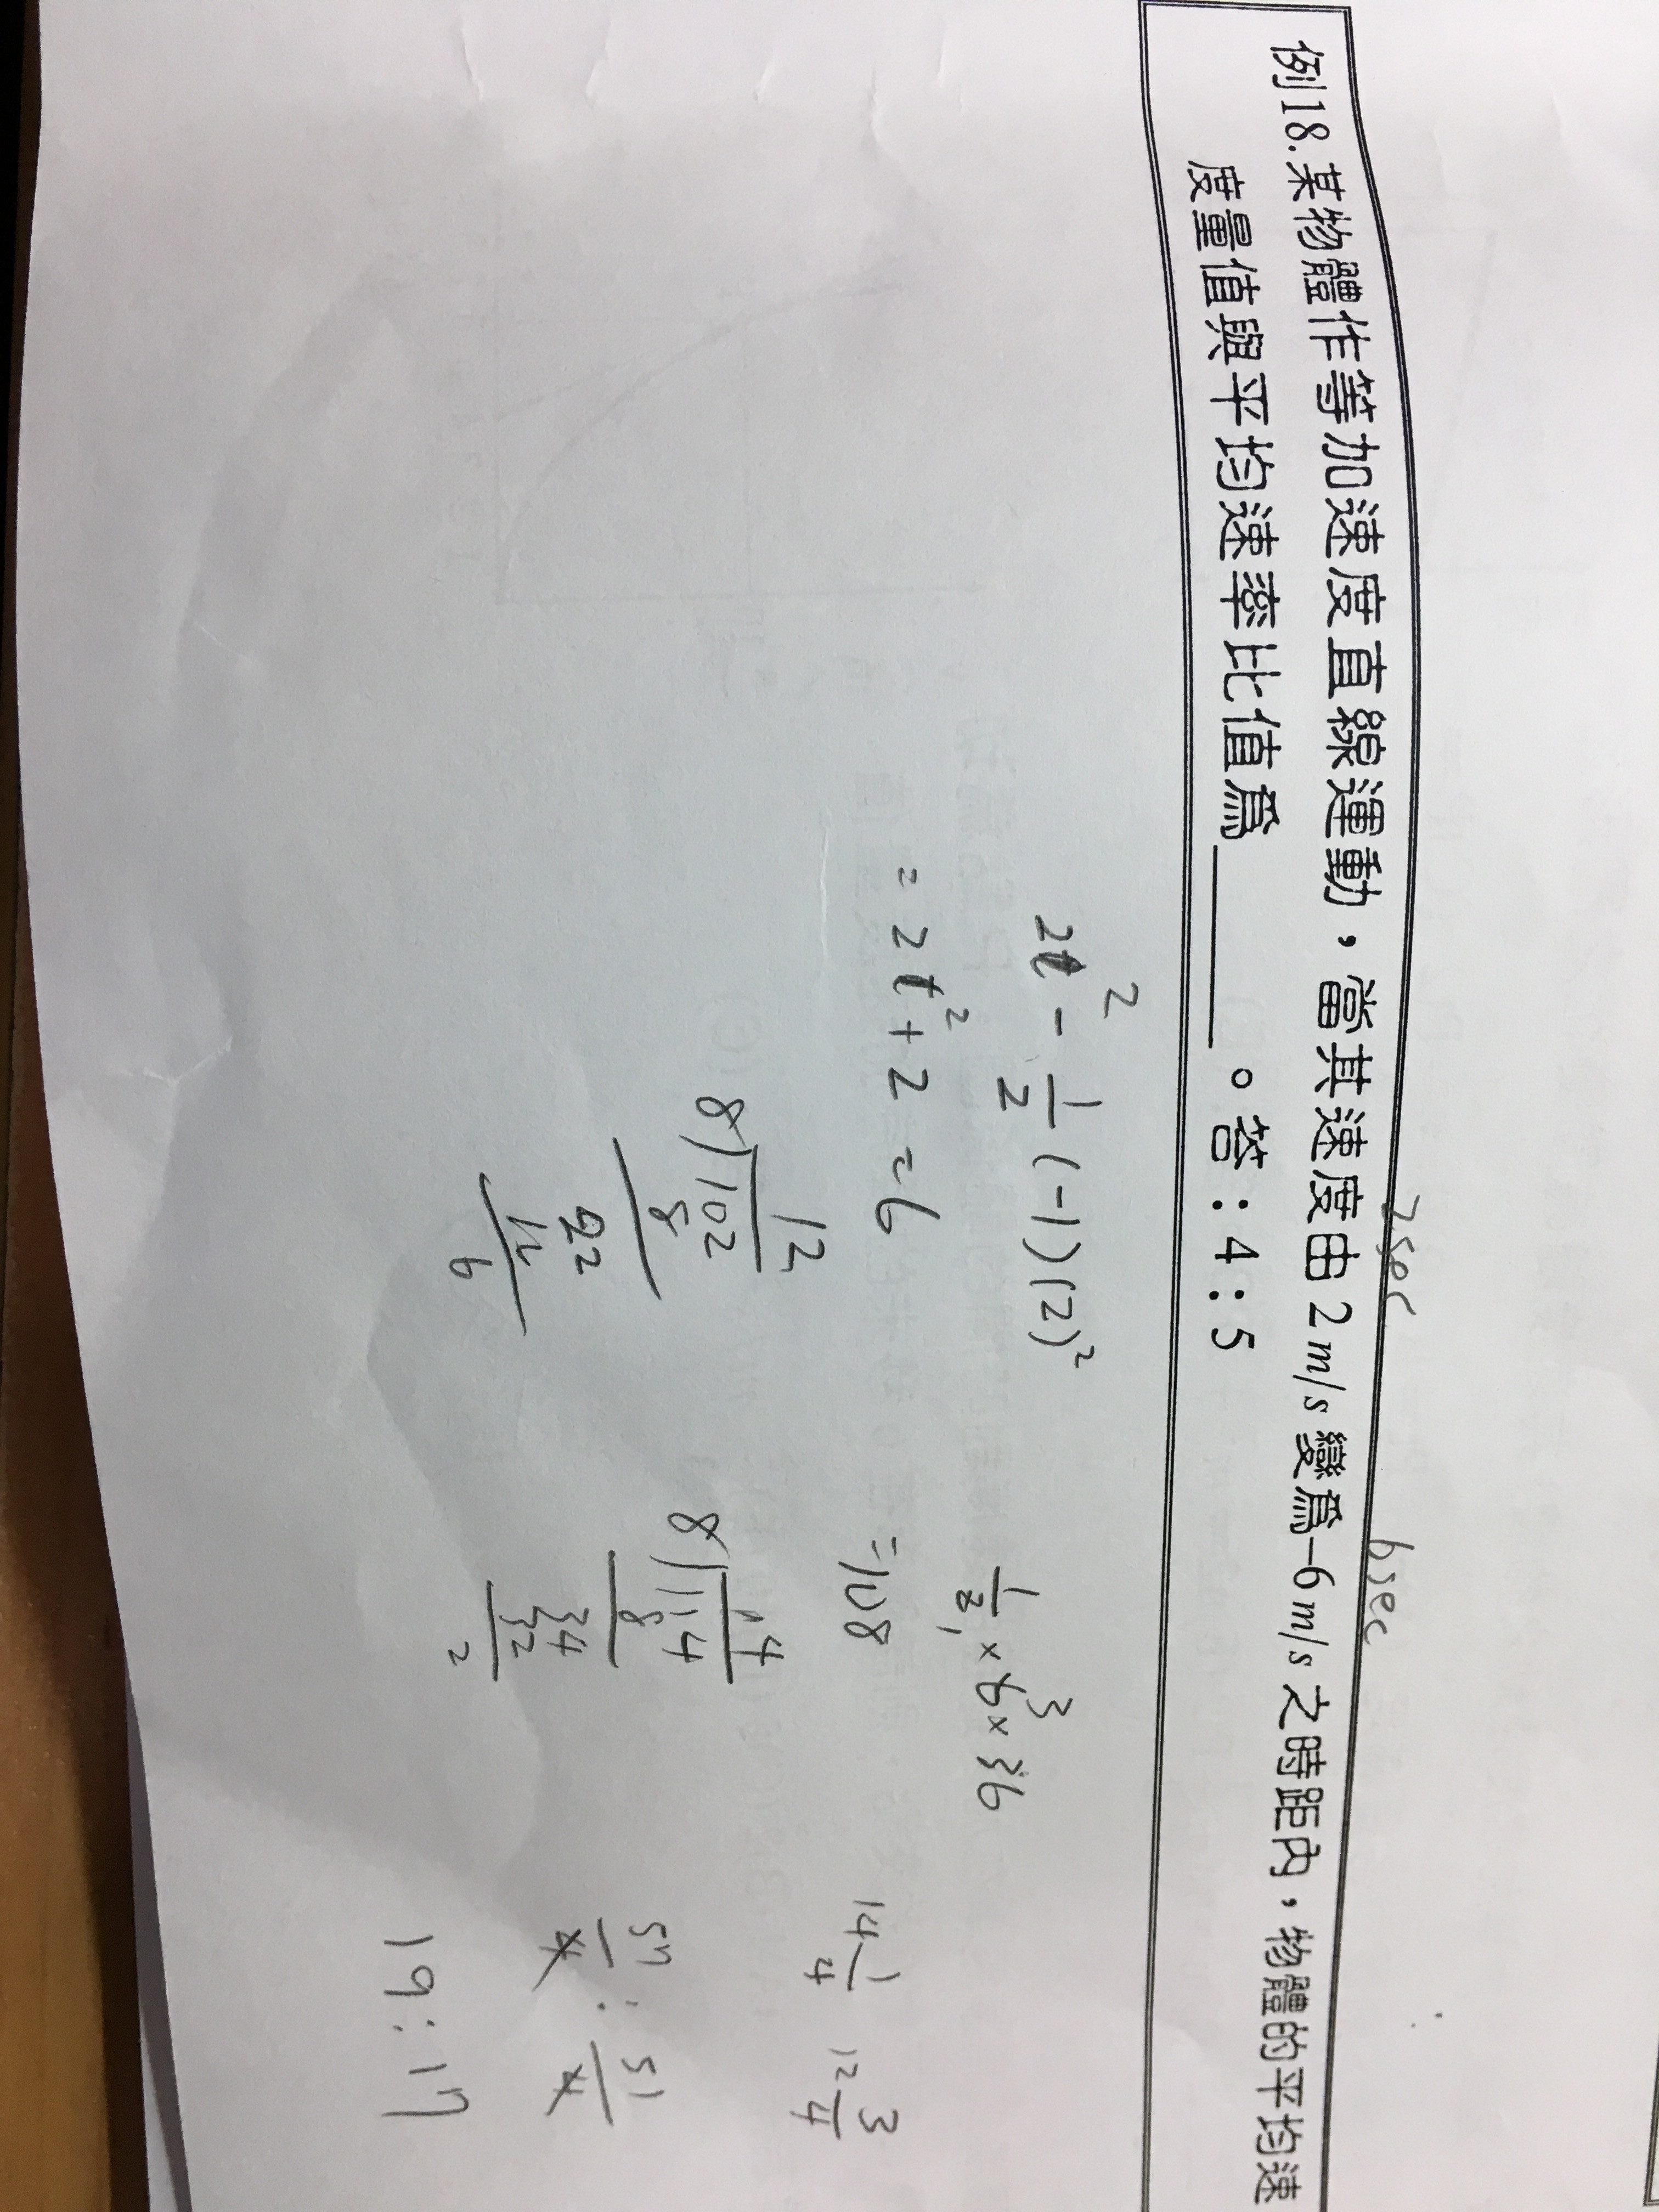 例18.某物體作等加速度直線運動，當其速度由 2 m/s 變為-6 m/s 之時距內，物體的平均速
度量值與平均速率比值為______。答：4：5
2sec
6sec
2t² - 1/2 (-1)(2)²
= 2t² + 2 = 6
12
8)102
8
22
16
6
1/2 × 6 × 36
3
=108
14
8)114
8
34
32
2
14 1/4
12 3/4
57/4 : 51/4
19:17